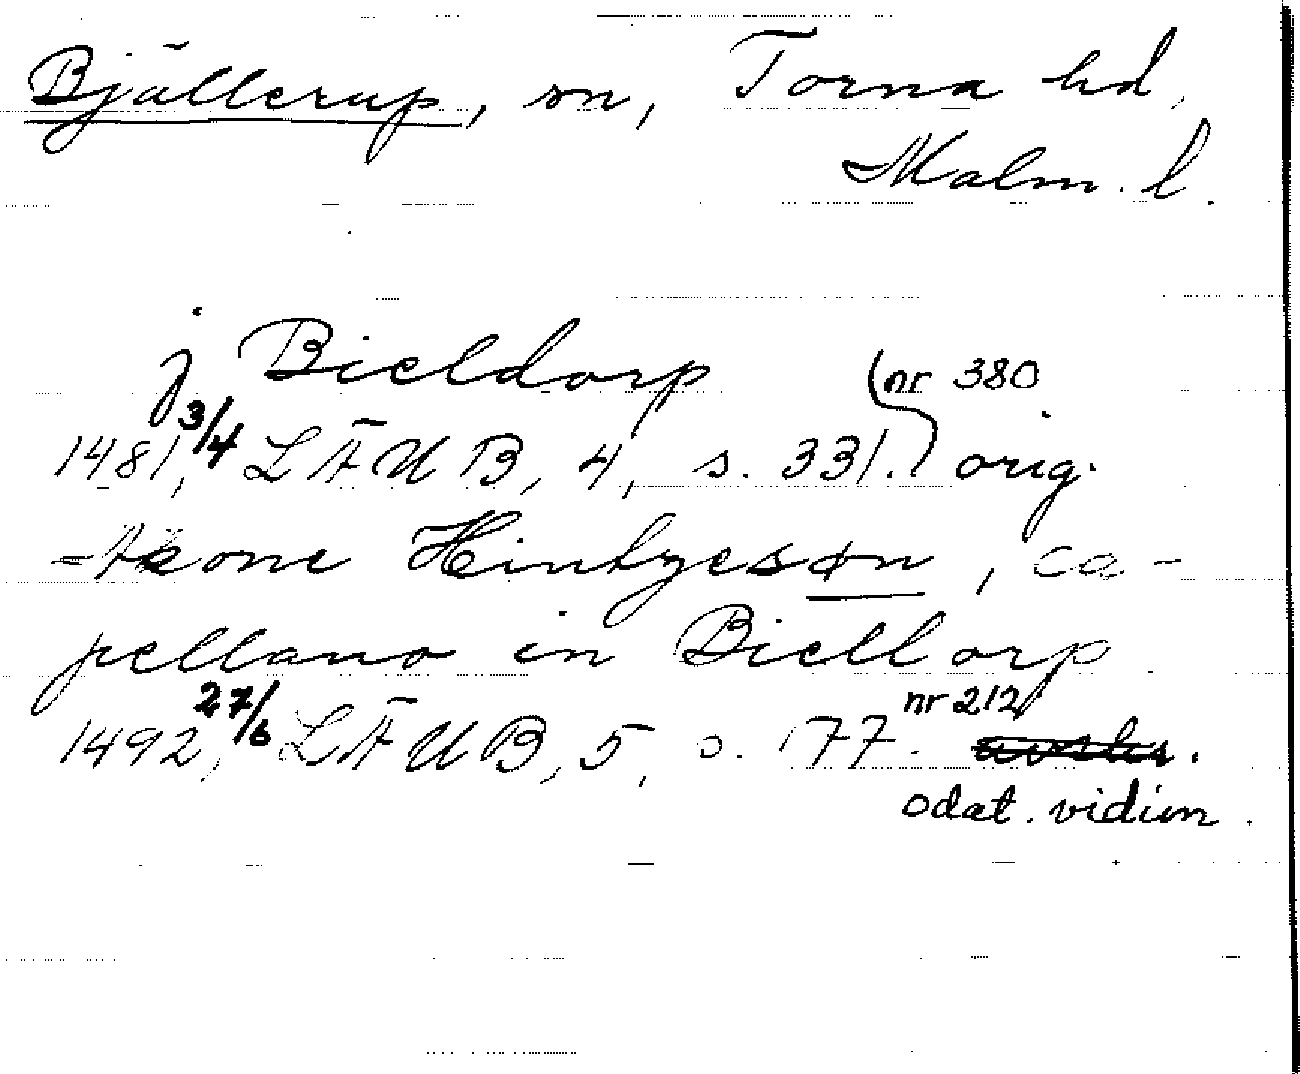 Bjällerup, sn, Torna hd,
Malm. l.
j Bieldorp
(nr 380)
1481, 3/4 LÄUB, 4, s. 331. orig.
Hintzesøn, ca-
pellano in Biellorp
1492, 27/6 LÄUB, 5, s. 177. nr 212
odat. vidim.